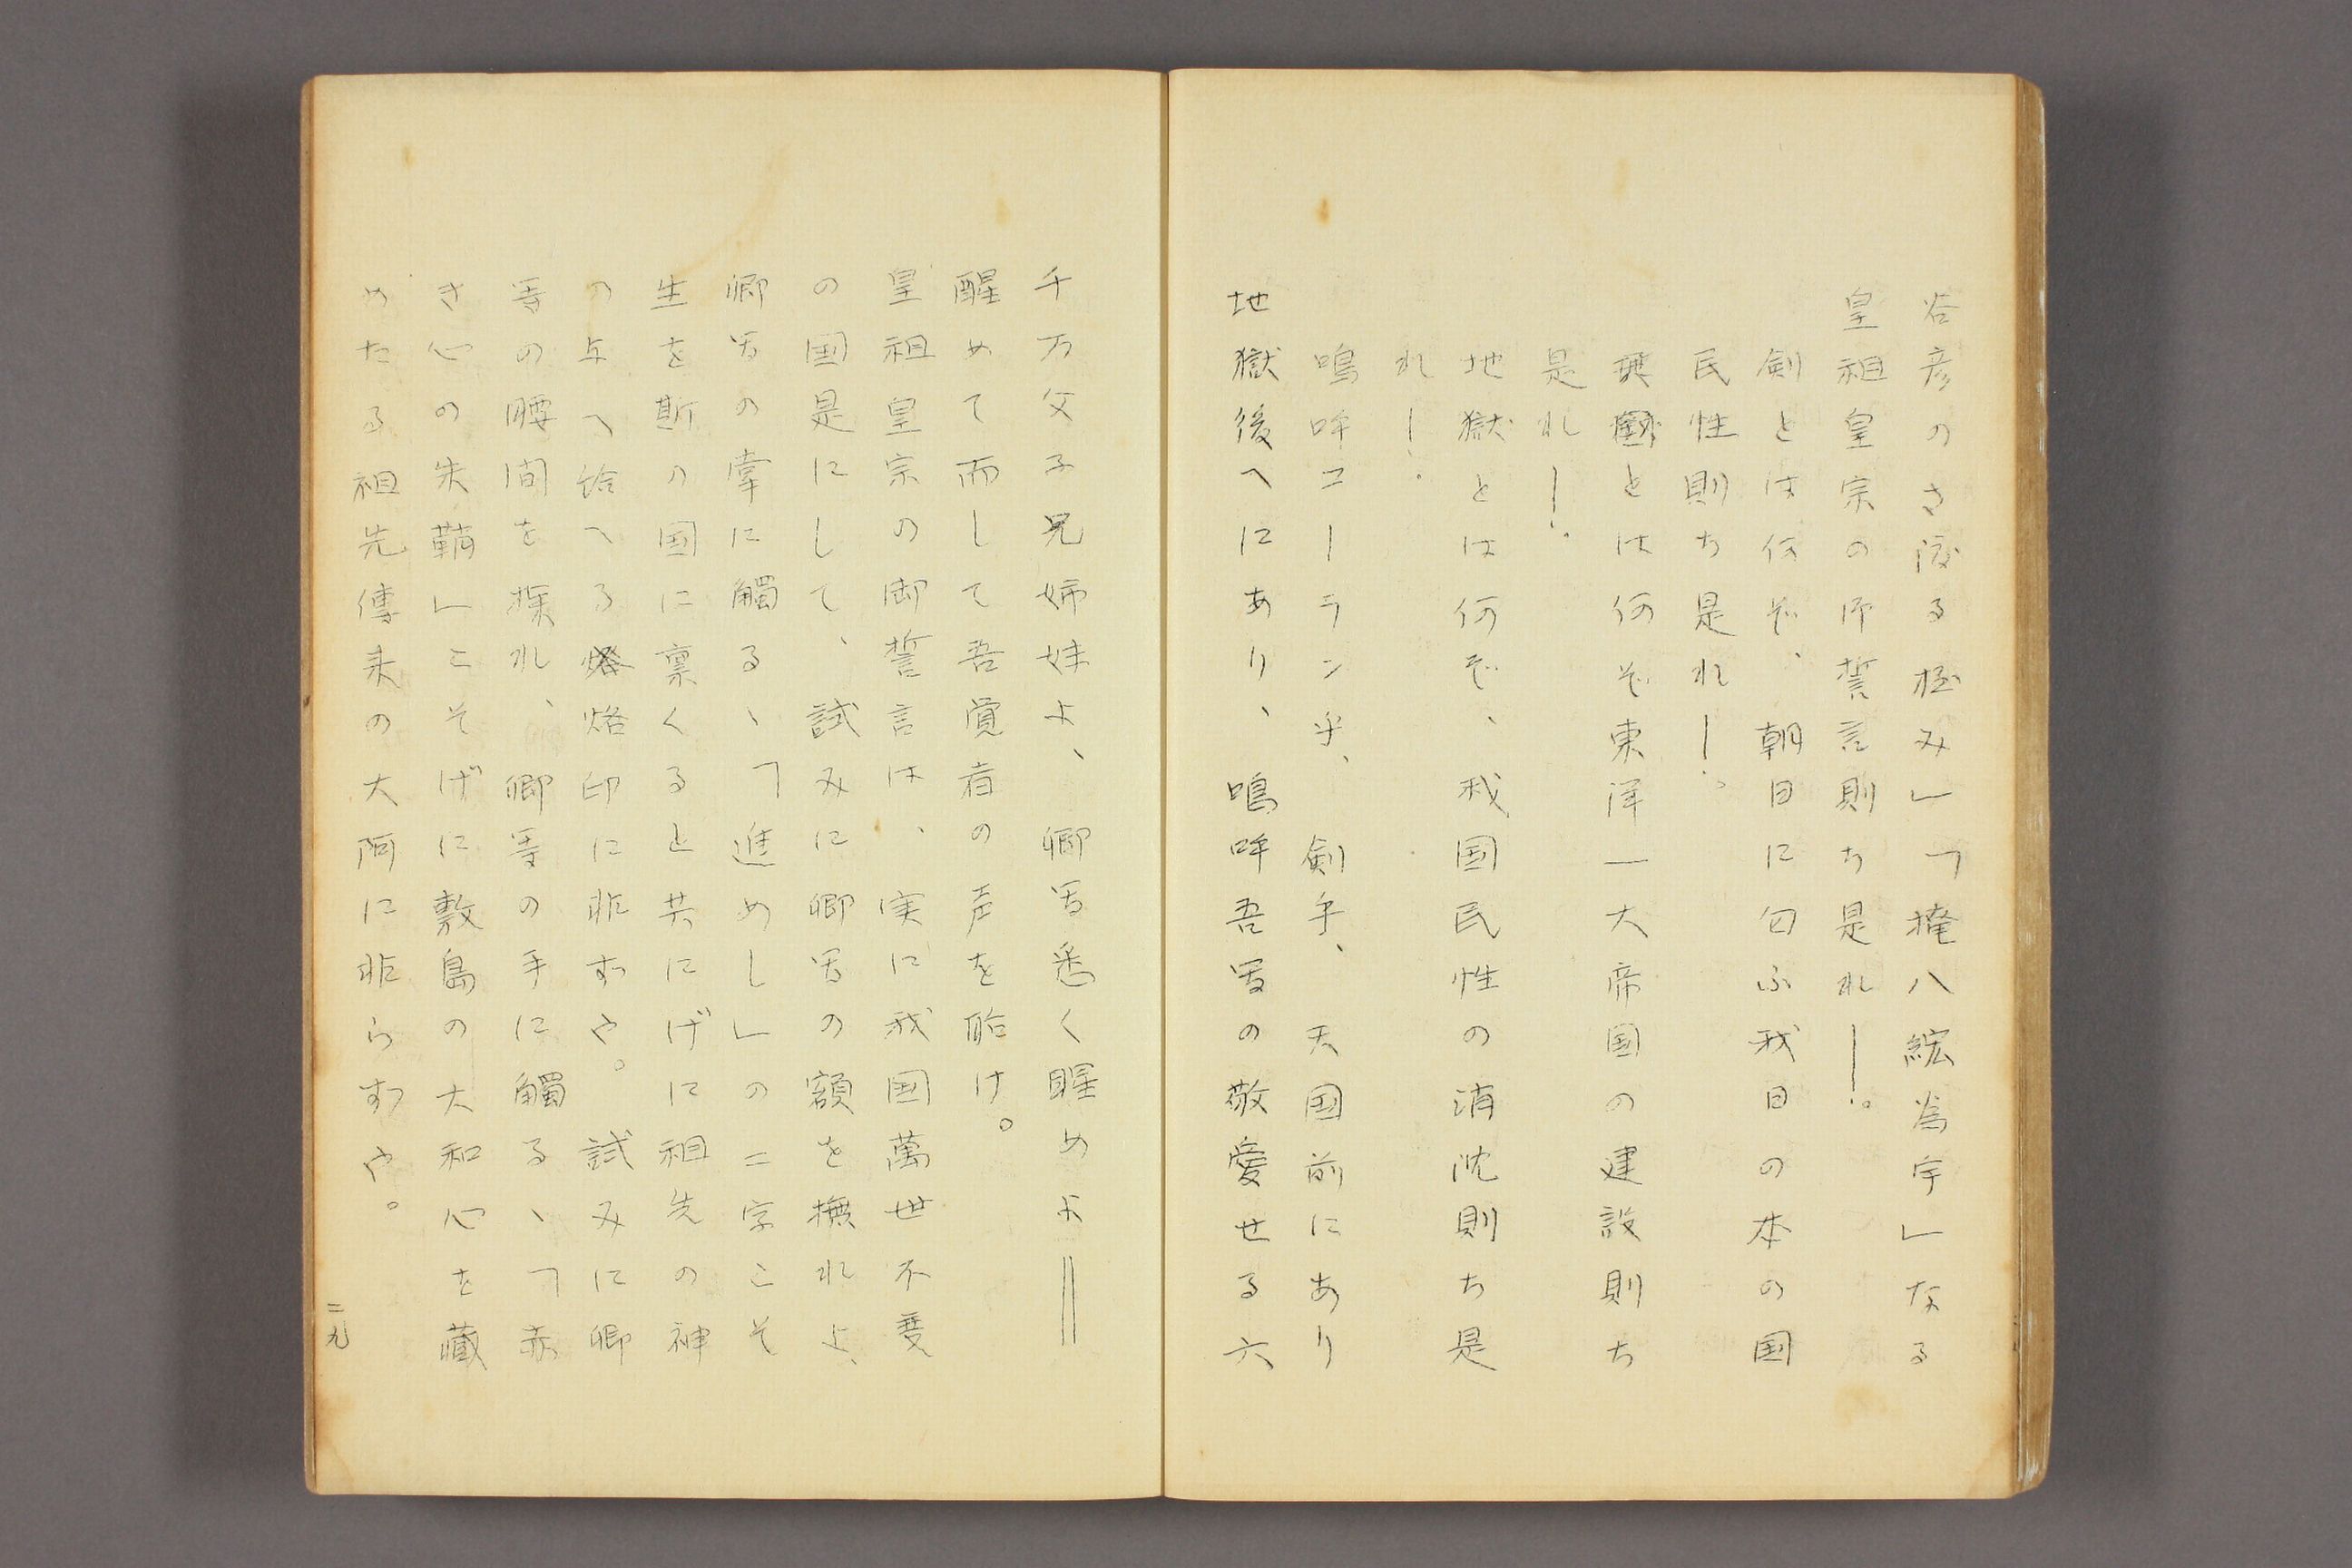 谷彦のさ渡る極み」「掩八紘為宇」なる
皇祖皇宗の御誓言則ち是れ―！。
剣とは何ぞ、朝日に匂ふ我日の本の国
民性則ち是れ―！。
天国とは何ぞ東洋一大帝国の建設則ち
是れ―！。
地獄とは何ぞ、我国民性の消沈則ち是
れ―！。
嗚呼コーラン乎、剣乎、天国前にあり
地獄後へにあり、嗚呼吾等の敬愛せる六
千万父子兄姉妹よ、卿等悉く醒めよ＝
醒めて而して吾覚者の声を聆け。
皇祖皇宗の御誓言は、実に我国萬世不変
の国是にして、試みに卿等の額を撫れよ、
卿等の掌に觸る、「進めし」の二字こそ
生を斯の国に禀くると共にげに祖先の神
の与へ給へる烙印に非ずや。試みに卿
等の腰間を探れ、卿等の手に觸る、「赤
き心の失鞘」こそげに敷島の大和心を蔵
めたる祖先傳来の大阿に非らずや。
二九